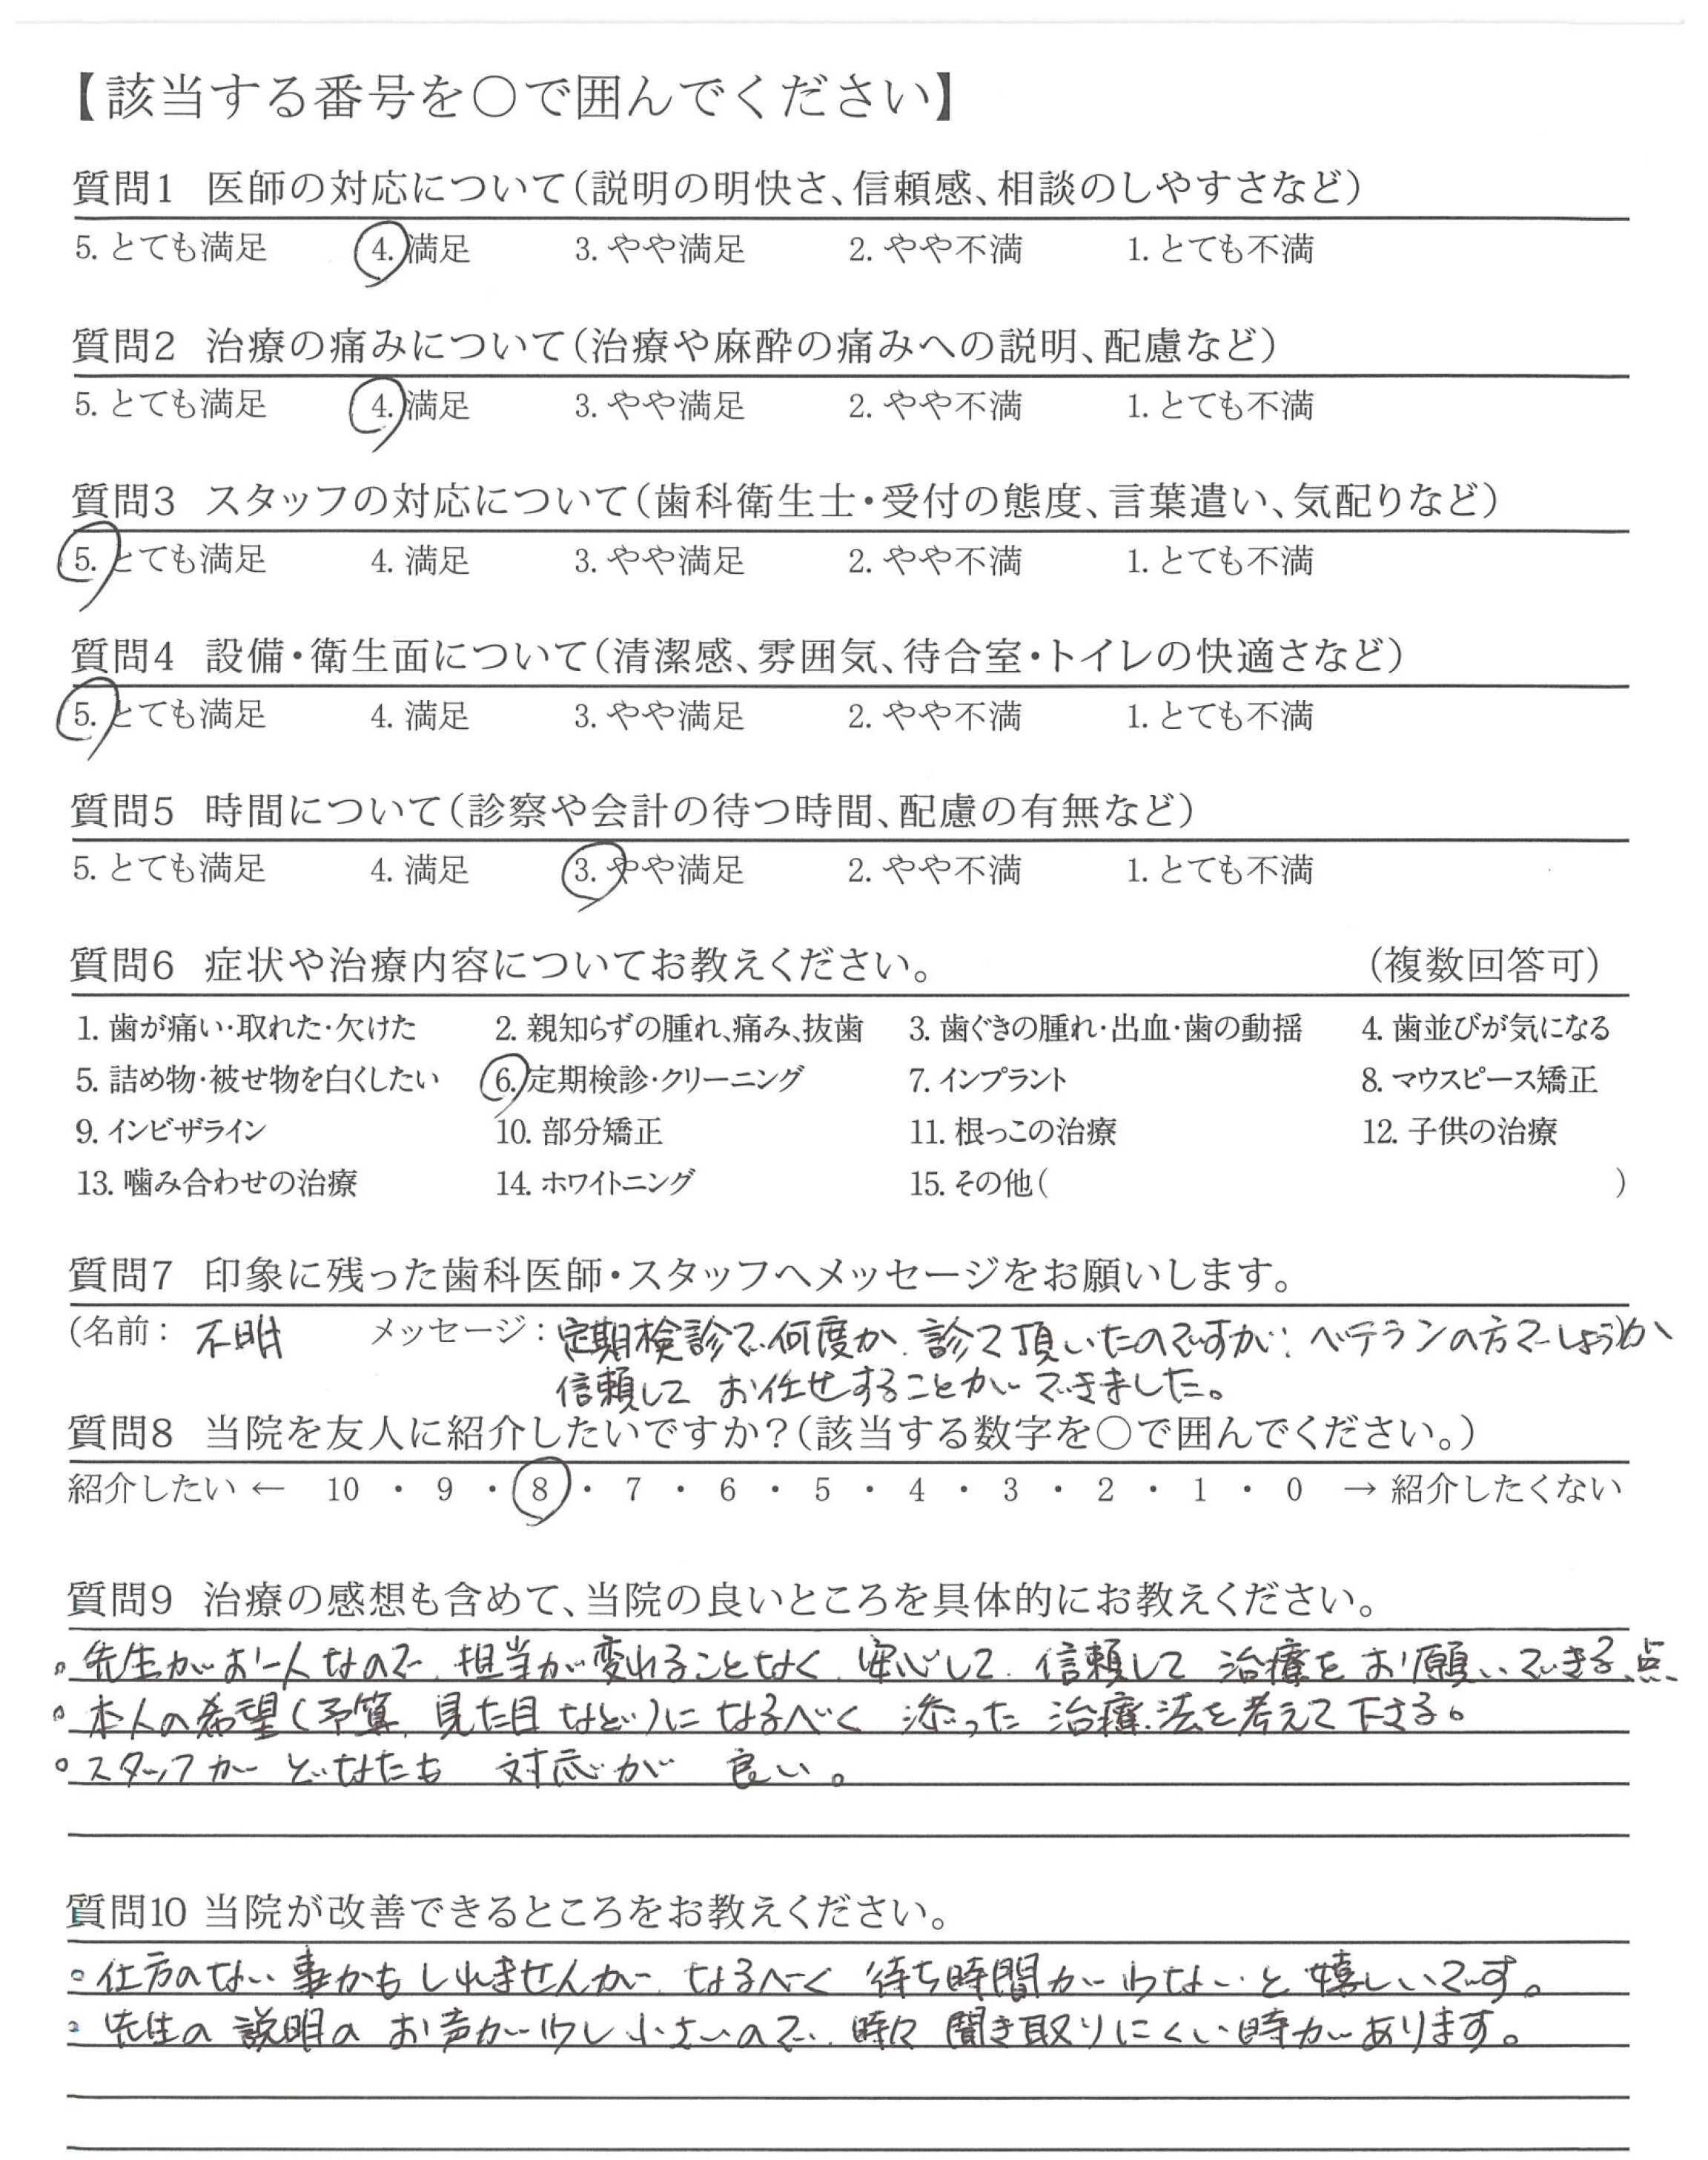 【該当する番号を○で囲んでください】
質問1 医師の対応について(説明の明快さ、信頼感、相談のしやすさなど)
5. とても満足 4. 満足 3. やや満足 2. やや不満 1. とても不満
質問2 治療の痛みについて(治療や麻酔の痛みへの説明、配慮など)
5. とても満足 4. 満足 3. やや満足 2. やや不満 1. とても不満
質問3 スタッフの対応について(歯科衛生士・受付の態度、言葉遣い、気配りなど)
5. とても満足 4. 満足 3. やや満足 2. やや不満 1. とても不満
質問4 設備・衛生面について(清潔感、雰囲気、待合室・トイレの快適さなど)
5. とても満足 4. 満足 3. やや満足 2. やや不満 1. とても不満
質問5 時間について(診察や会計の待つ時間、配慮の有無など)
5. とても満足 4. 満足 3. やや満足 2. やや不満 1. とても不満
質問6 症状や治療内容についてお教えください。 (複数回答可)
1. 歯が痛い・取れた・欠けた 2. 親知らずの腫れ、痛み、抜歯 3. 歯ぐきの腫れ・出血・歯の動揺 4. 歯並びが気になる
5. 詰め物・被せ物を白くしたい 6. 定期検診・クリーニング 7. インプラント 8. マウスピース矯正
9. インビザライン 10. 部分矯正 11. 根っこの治療 12. 子供の治療
13. 噛み合わせの治療 14. ホワイトニング 15. その他( )
質問7 印象に残った歯科医師・スタッフへメッセージをお願いします。
(名前: 不明 メッセージ: 定期検診で何度か、診て頂いたのですが、ベテランの方でしょうか
信頼して お任せすることができました。
質問8 当院を友人に紹介したいですか?(該当する数字を○で囲んでください。)
紹介したい ← 10 ・ 9 ・ 8 ・ 7 ・ 6 ・ 5 ・ 4 ・ 3 ・ 2 ・ 1 ・ 0 → 紹介したくない
質問9 治療の感想も含めて、当院の良いところを具体的にお教えください。
。先生がお一人なので、担当が変れることなく、安心して、信頼して 治療をお願いできる点、
。本人の希望(予算、見た目など)に なるべく 添った 治療法を考えて下さる。
。スタッフが どなたも 対応が 良い。
質問10 当院が改善できるところをお教えください。
。仕方のない事かもしれませんが、なるべく 待ち時間が少ないと嬉しいです。
。先生の 説明の お声が少し小さいので、時々 聞き取りにくい時があります。